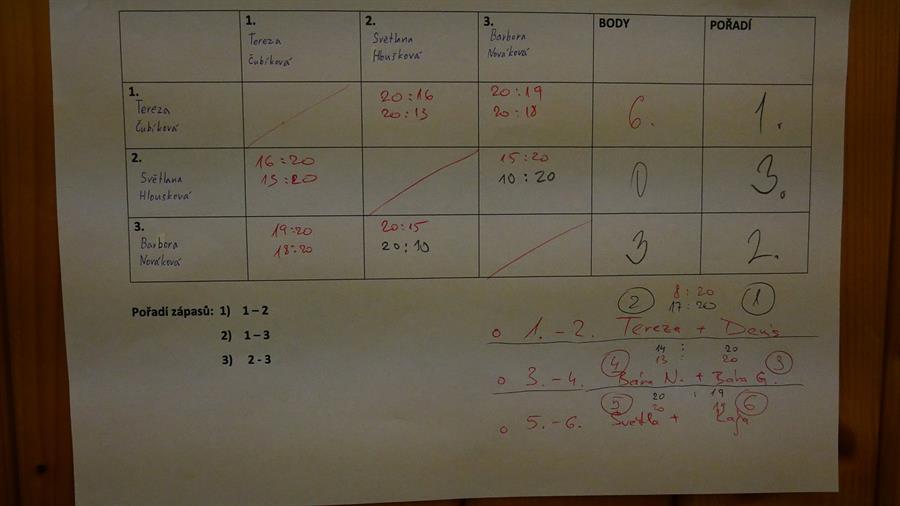 1. 2. 3. BODY POŘADÍ
Tereza Světlana Barbora
Čubíková Hloušková Nováková
1.
Tereza 20:16 20:19 6. 1.
Čubíková 20:13 20:18
2.
Světlana 16:20 15:20 0 3.
Hloušková 13:20 10:20
3.
Barbora 19:20 20:15 3 2.
Nováková 18:20 20:10
Pořadí zápasů: 1) 1 – 2
2) 1 – 3
3) 2 - 3
2 8:20 1
17:20
o 1. – 2. Tereza + Denis
4 14 : 20 3
13 : 20
o 3. – 4. Bára N. + Bára G.
5 20 : 19 6
20 19
o 5. – 6. Světla + Kája